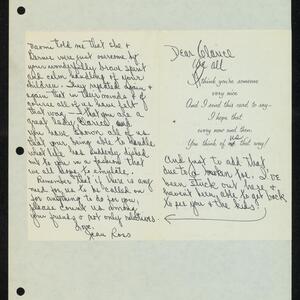 Dear Clarice
We all
I think you're someone
very nice
And I send this card to say—
I hope that
every now and then
You think of us that way!
And just to add that
due to a broken toe, I've
been stuck out here &
haven't been able to get back
to see you & the kids!
told me that she &
were just overcome by
your wonderfully brave spirit
and calm handling of your
children. They repeated again &
again that in their minds & of
course all of us have felt
that way — that you are a
great lady Clarice and
you have shown all of us
that your being able to handle
what life has suddenly dished
out to you in a fashion that
we all hope to emulate.
Remember that if there is any
need for us to be called on
for anything to do for you,
please count us among
your friends & not only relatives
Love,
Jean Ross